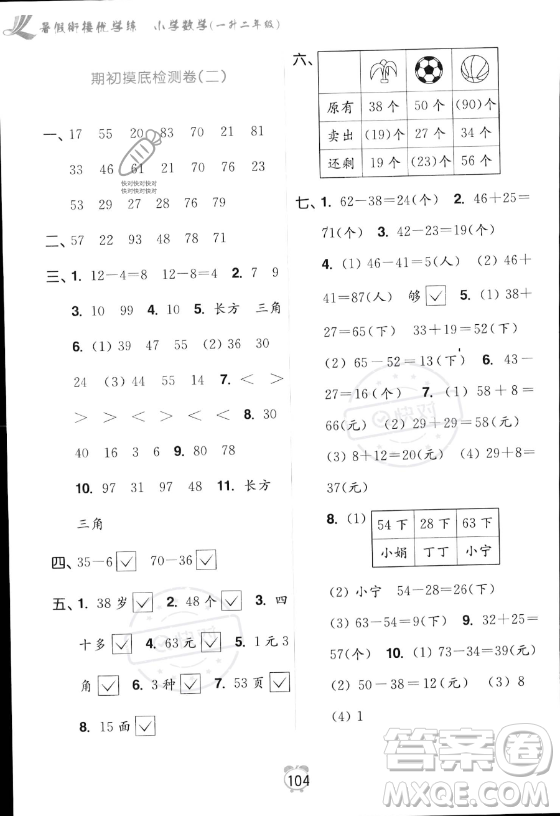 暑假衔接优学练 小学数学(一升二年级)
期初摸底检测卷(二)
一、17 55 20 83 70 21 81
33 46 61 21 20 76 70
53 29 30 40 58 78
二、57 22 93 48 29 78
三、1. 12-4=8 12-8=4 2. 7 9
3. 10 99 4. 10 5. 长方 三角
6. (1) 39 54 20 (2) 30
24 (3) 44 55 7. < >
> > < < 8. 30
40 16 3 6 9. 80 78
10. 97 31 97 48 11. 长方
三角
四、35-6 ✓ 70-36 ✓
五、1. 38岁 ✓ 2. 48个 ✓ 3. 四
十多 ✓ 4. 63元 ✓ 5. 1元3
角 ✓ 6. 3种 ✓ 7. 53页 ✓
8. 15面 ✓
六、
原有 38个 50个 (90)个
卖出 (19)个 (27)个 34个
还剩 19个 (23)个 56个
七、1. 62-38=24(个) 2. 46+25=
71(个) 3. 42-23=19(个)
4. (1) 46-41=5(人) (2) 46+
41=87(人) 够 ✓ 5. (1) 38+
27=65(下) 33+19=52(下)
(2) 65-52=13(下) 6. 43-
27=16(元) 7. (1) 58+8=
66(元) (2) 29+29=58(元)
(3) 8+12=20(元) (4) 29+8=
37(元)
8. (1) 54下 28下 63下
小娟 丁丁 小宁
(2) 小宁 54-28=26(下)
(3) 63-54=9(下) 9. 32+25=
57(个) 10. (1) 73-34=39(元)
(2) 50-42=8(元) (3) 8
(4) 1
104
快对快对快对
快对快对快对
快对
答案卷